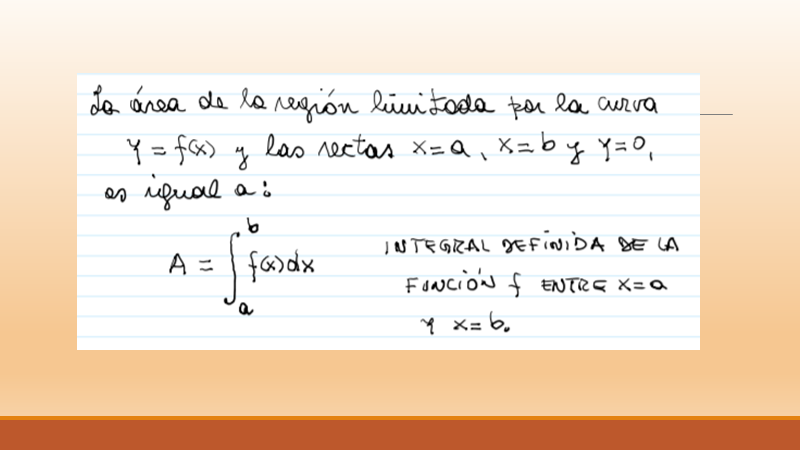 La área de la región limitada por la curva
Y = f(x) y las rectas x=a, x=b y Y=0,
es igual a:
A = ∫_a^b f(x)dx
INTEGRAL DEFINIDA DE LA
FUNCIÓN f ENTRE x=a
Y x=b.